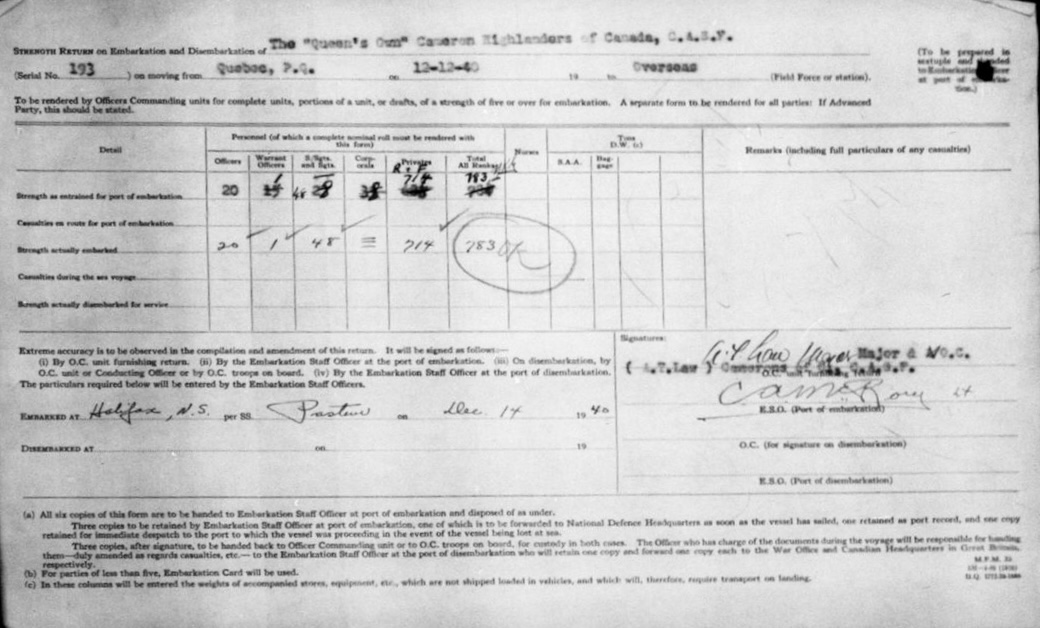 STRENGTH RETURN on Embarkation and Disembarkation of The "Queen's Own" Cameron Highlanders of Canada, C.A.S.F.
(Serial No. 193 ) on moving from Quebec, P.Q. on 12-12-40 19 to Overseas (Field Force or station).
(To be prepared in
to Embarkation
at port of
tion.)
To be rendered by Officers Commanding units for complete units, portions of a unit, or drafts, of a strength of five or over for embarkation. A separate form to be rendered for all parties: If Advanced
Party, this should be stated.
Detail
Personnel (of which a complete nominal roll must be rendered with
this form)
Officers
Warrant
Officers
S/Sgts.
and Sgts.
Corp-
orals
Privates
Total
All Ranks
Nurses
Tons
D.W. (c)
B.A.A.
Bag-
gage
Remarks (including full particulars of any casualties)
R & F
1 714 783
Strength as entrained for port of embarkation 20 48
Casualties en route for port of embarkation
Strength actually embarked 20 1 48 714 783 OK
Casualties during the sea voyage
Strength actually disembarked for service
Extreme accuracy is to be observed in the compilation and amendment of this return. It will be signed as follows:—
(i) By O.C. unit furnishing return. (ii) By the Embarkation Staff Officer at the port of embarkation. (iii) On disembarkation, by
O.C. unit or Conducting Officer or by O.C. troops on board. (iv) By the Embarkation Staff Officer at the port of disembarkation.
The particulars required below will be entered by the Embarkation Staff Officers.
EMBARKED AT Halifax, N.S. per SS. Pasteur on Dec. 14 19 40
DISEMBARKED AT on 19
Signatures:
A.T. Law Major Major & A/O.C.
( A.T.Law ) Camerons of C. C.A.S.F.
E.S.O. (Port of embarkation)
O.C. (for signature on disembarkation)
E.S.O. (Port of disembarkation)
(a) All six copies of this form are to be handed to Embarkation Staff Officer at port of embarkation and disposed of as under.
Three copies to be retained by Embarkation Staff Officer at port of embarkation, one of which is to be forwarded to National Defence Headquarters as soon as the vessel has sailed, one retained as port record, and one copy
retained for immediate despatch to the port to which the vessel was proceeding in the event of the vessel being lost at sea.
Three copies, after signature, to be handed back to Officer Commanding unit or to O.C. troops on board, for custody in both cases. The Officer who has charge of the documents during the voyage will be responsible for handing
them—duly amended as regards casualties, etc.— to the Embarkation Staff Officer at the port of disembarkation who will retain one copy and forward one copy each to the War Office and Canadian Headquarters in Great Britain,
respectively.
(b) For parties of less than five, Embarkation Card will be used.
(c) In these columns will be entered the weights of accompanied stores, equipment, etc., which are not shipped loaded in vehicles, and which will, therefore, require transport on landing.